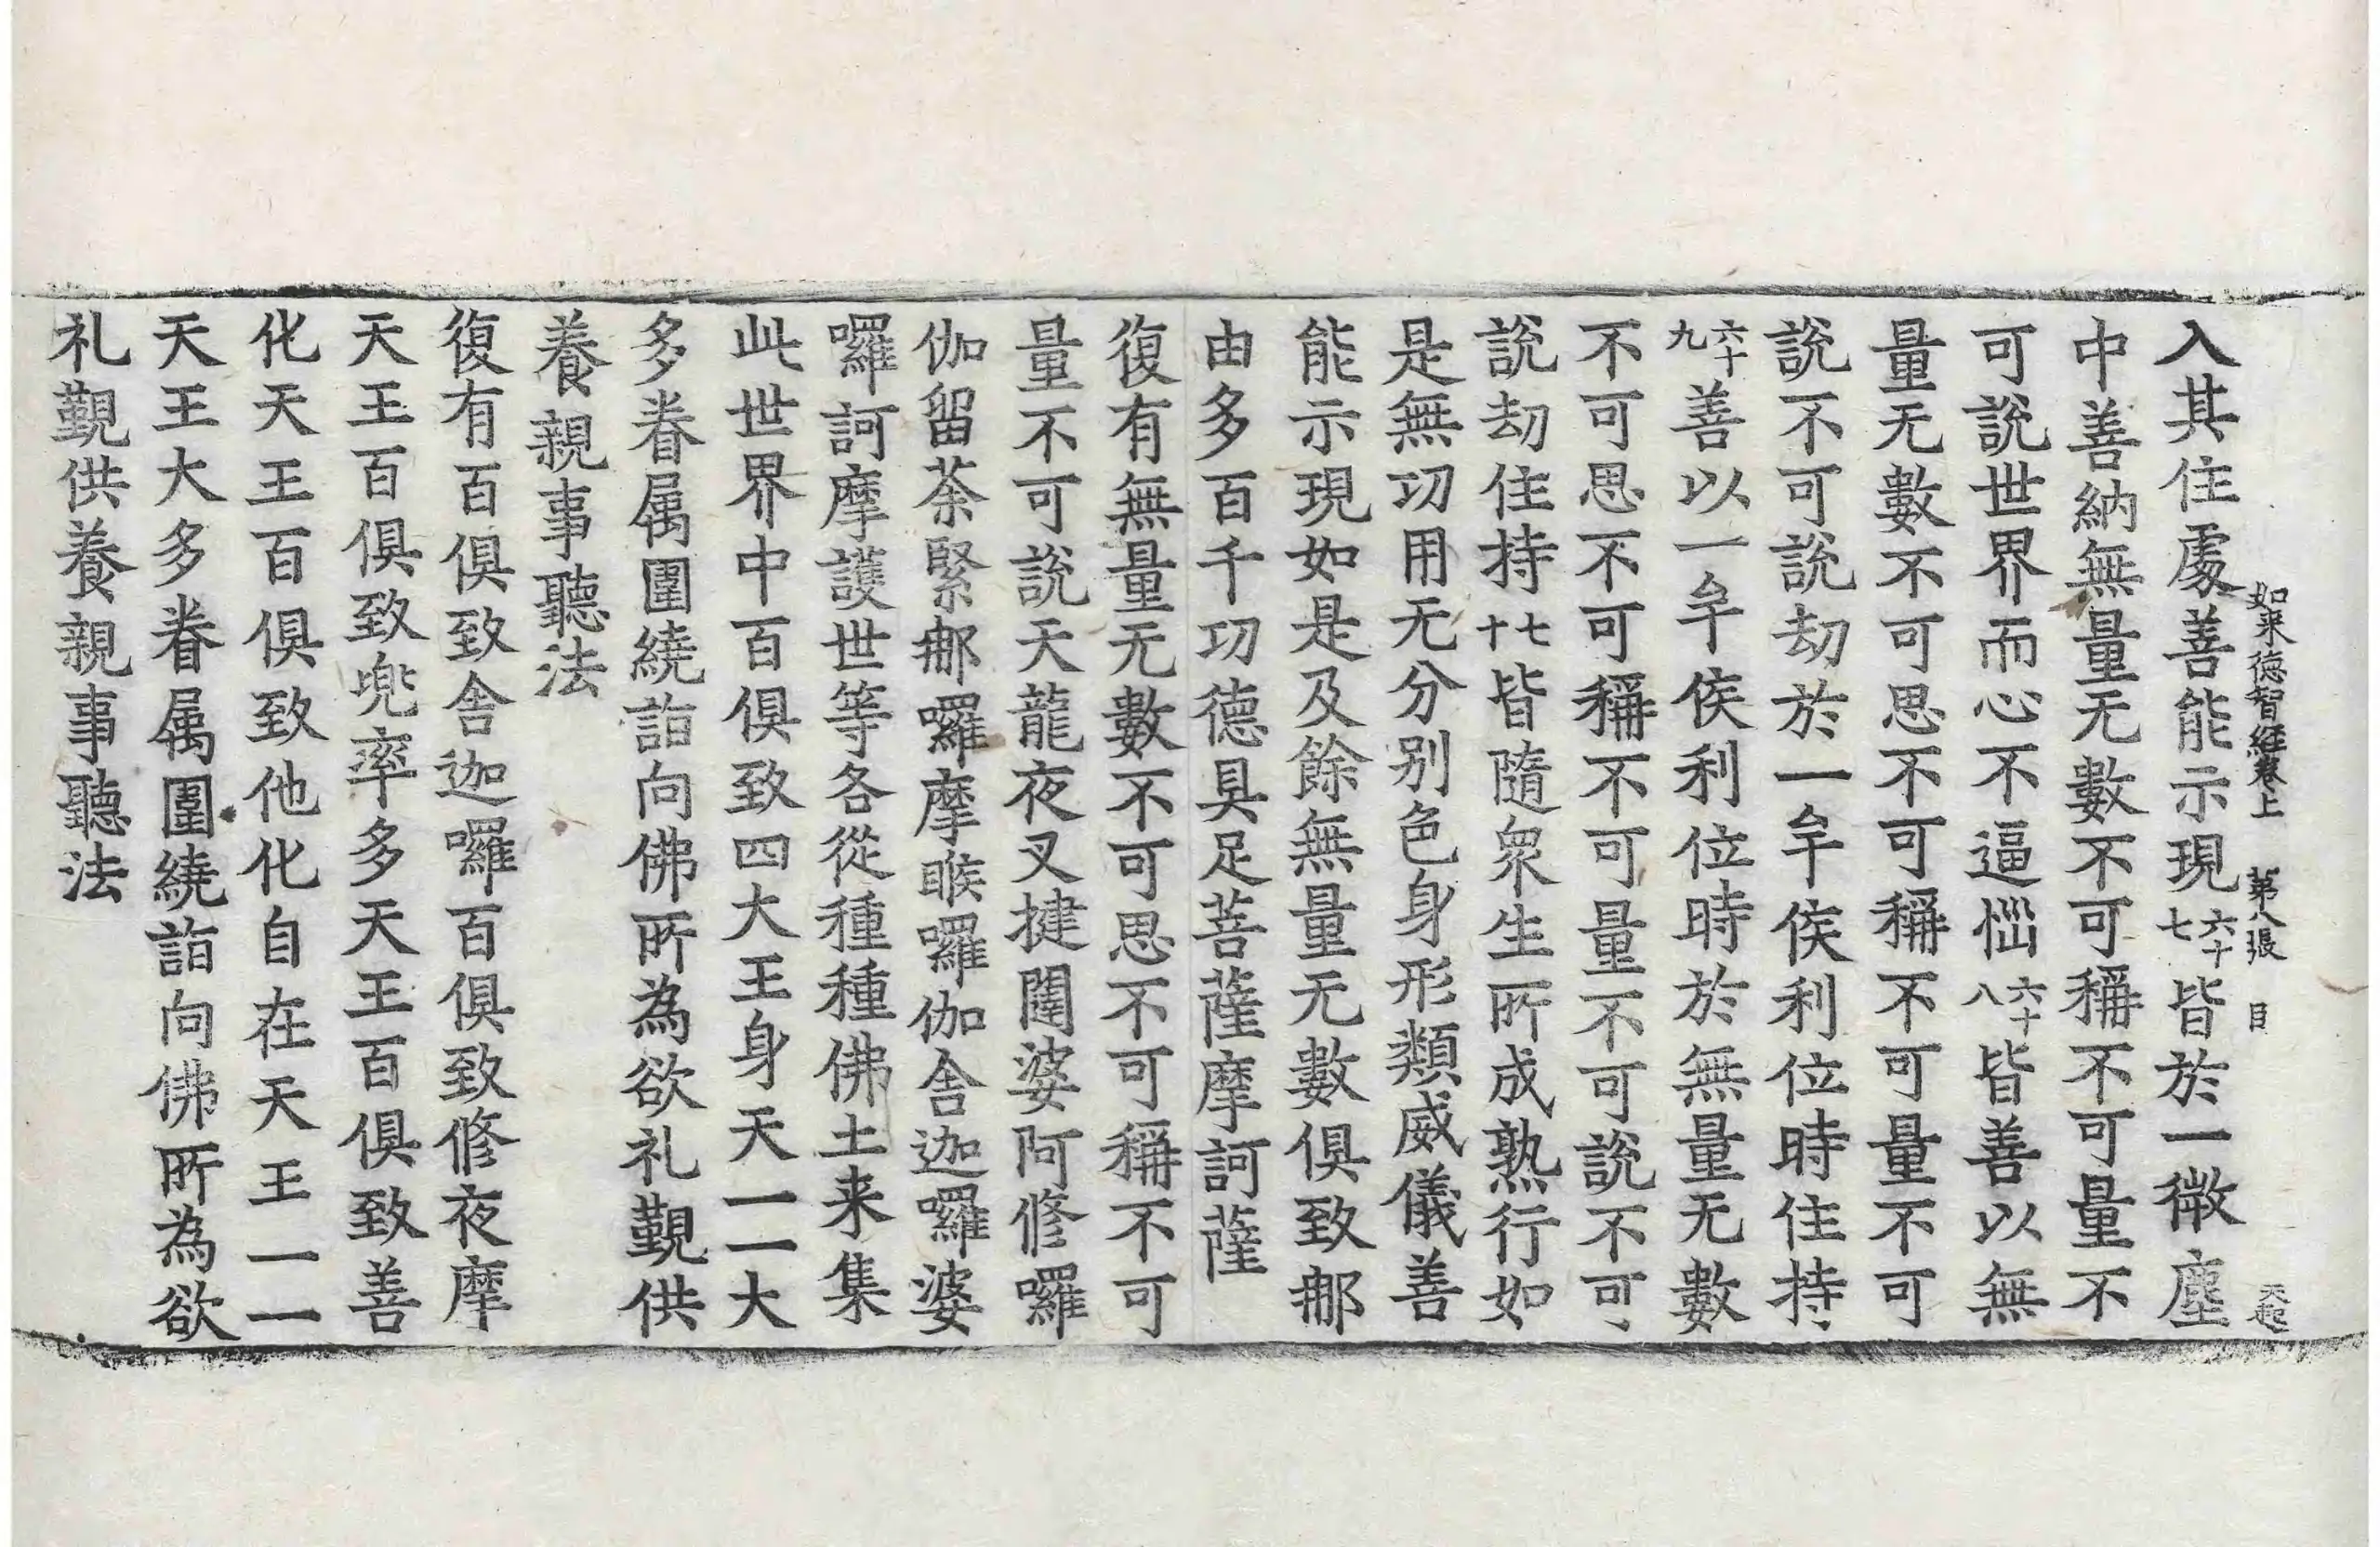 如来德智經卷上　第八張　目　天起
入其住處善能示現六十七皆於一微塵
中善納無量无數不可稱不可量不
可說世界而心不逼惱六十八皆善以無
量无數不可思不可稱不可量不可
說不可說劫於一牟侯利位時住持
六十九善以一牟侯利位時於無量无數
不可思不可稱不可量不可說不可
說劫住持七十皆隨衆生所成熟行如
是無功用无分別色身形類威儀善
能示現如是及餘無量无數俱致那
由多百千功德具足菩薩摩訶薩
復有無量无數不可思不可稱不可
量不可說天龍夜叉揵闥婆阿修囉
伽留荼緊那囉摩睺囉伽舍迦囉婆
囉訶摩護世等各從種種佛土来集
此世界中百俱致四大王身天一一大
多眷属圍繞詣向佛所為欲礼覲供
養親事聽法
復有百俱致舍迦囉百俱致修夜摩
天王百俱致兜率多天王百俱致善
化天王百俱致他化自在天王一一
天王大多眷属圍繞詣向佛所為欲
礼覲供養親事聽法